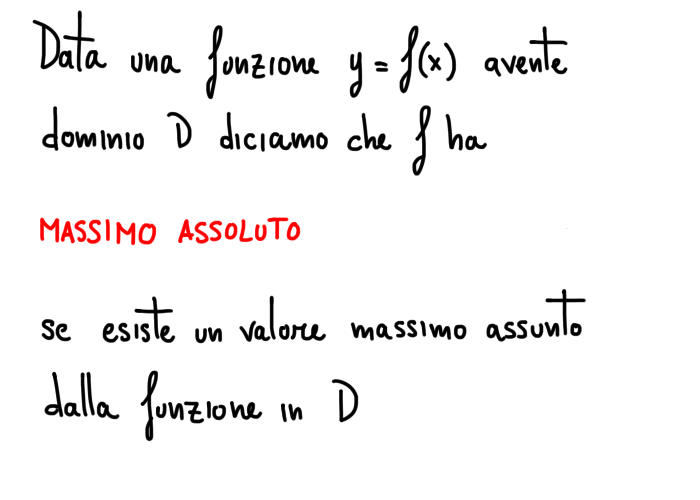 Data una funzione y = f(x) avente
dominio D diciamo che f ha
MASSIMO ASSOLUTO
se esiste un valore massimo assunto
dalla funzione in D